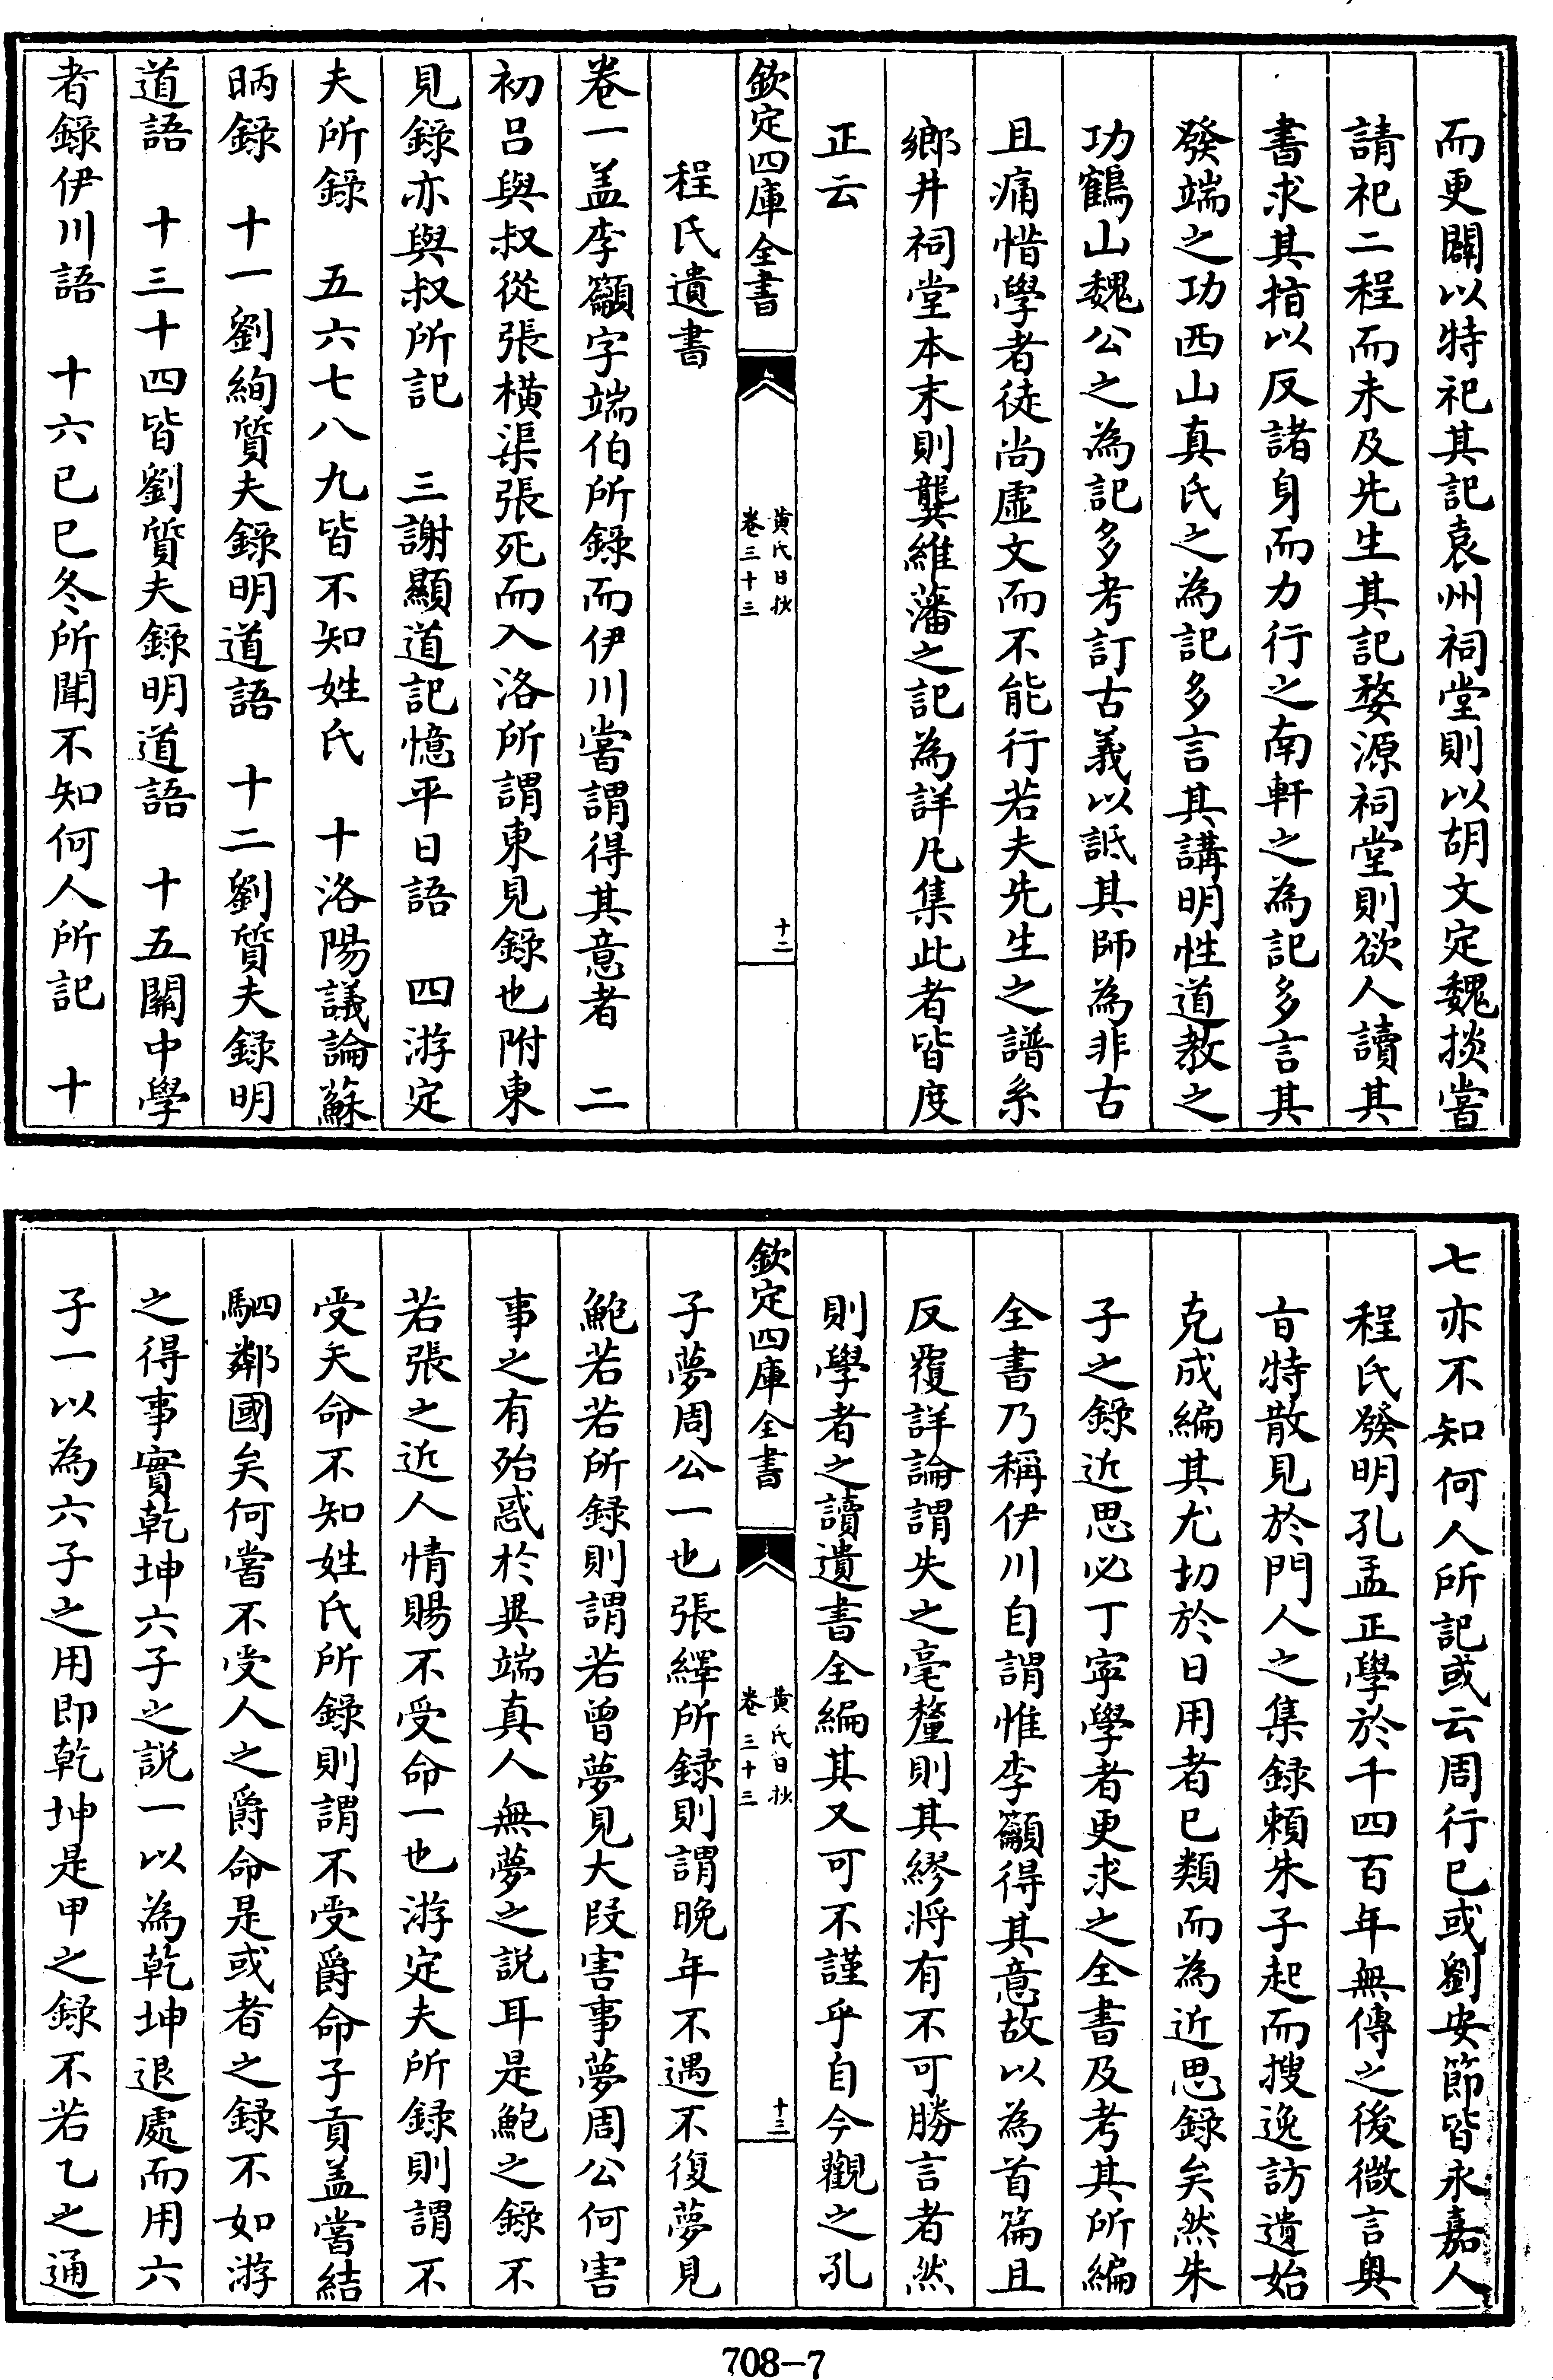 而更闢以特祀其記袁州祠堂則以胡文定魏掞嘗
請祀二程而未及先生其記婺源祠堂則欲人讀其
書求其指以反諸身而力行之南軒之為記多言其
發端之功西山真氏之為記多言其講明性道教之
功鶴山魏公之為記多考訂古義以詆其師為非古
且痛惜學者徒尚虛文而不能行若夫先生之譜系
鄉井祠堂本末則龔維藩之記為詳凡集此者皆度
正云
欽定四庫全書
黃氏日抄
卷三十三
十二
程氏遺書
卷一盖李籲字端伯所錄而伊川嘗謂得其意者 二
初呂與叔從張橫渠張死而入洛所謂東見錄也附東
見錄亦與叔所記 三謝顯道記憶平日語 四游定
夫所錄 五六七八九皆不知姓氏 十洛陽議論蘇
昞錄 十一劉絢質夫錄明道語 十二劉質夫録明
道語 十三十四皆劉質夫錄明道語 十五關中學
者錄伊川語 十六已巳冬所聞不知何人所記 十
七亦不知何人所記或云周行已或劉安節皆永嘉人
程氏發明孔孟正學於千四百年無傳之後微言奥
㫖特散見於門人之集録賴朱子起而搜逸訪遺始
克成編其尤切於日用者已類而為近思録矣然朱
子之錄近思必丁寕學者更求之全書及考其所編
全書乃稱伊川自謂惟李籲得其意故以為首篇且
反覆詳論謂失之毫釐則其繆將有不可勝言者然
則學者之讀遺書全編其又可不謹乎自今觀之孔
欽定四庫全書
黃氏日抄
卷三十三
十三
子夢周公一也張繹所録則謂晚年不遇不復夢見
鮑若若所録則謂若曾夢見大段害事夢周公何害
事之有殆惑於異端真人無夢之説耳是鮑之錄不
若張之近人情賜不受命一也游定夫所録則謂不
受天命不知姓氏所錄則謂不受爵命子貢盖嘗結
駟鄰國矣何嘗不受人之爵命是或者之録不如游
之得事實乾坤六子之説一以為乾坤退處而用六
子一以為六子之用即乾坤是甲之録不若乙之通
708-7